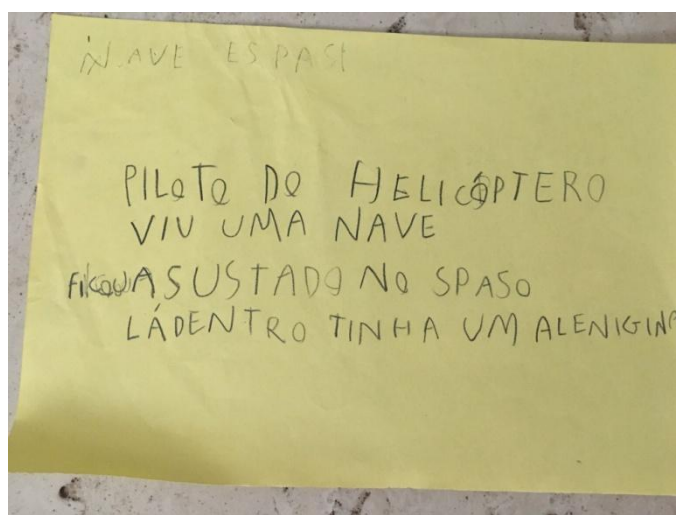 NAVE ESPASI
PILOTO DO HELICÓPTERO
VIU UMA NAVE
FICOU ASUSTADO NO SPASO
LÁDENTRO TINHA UM ALENIGINA